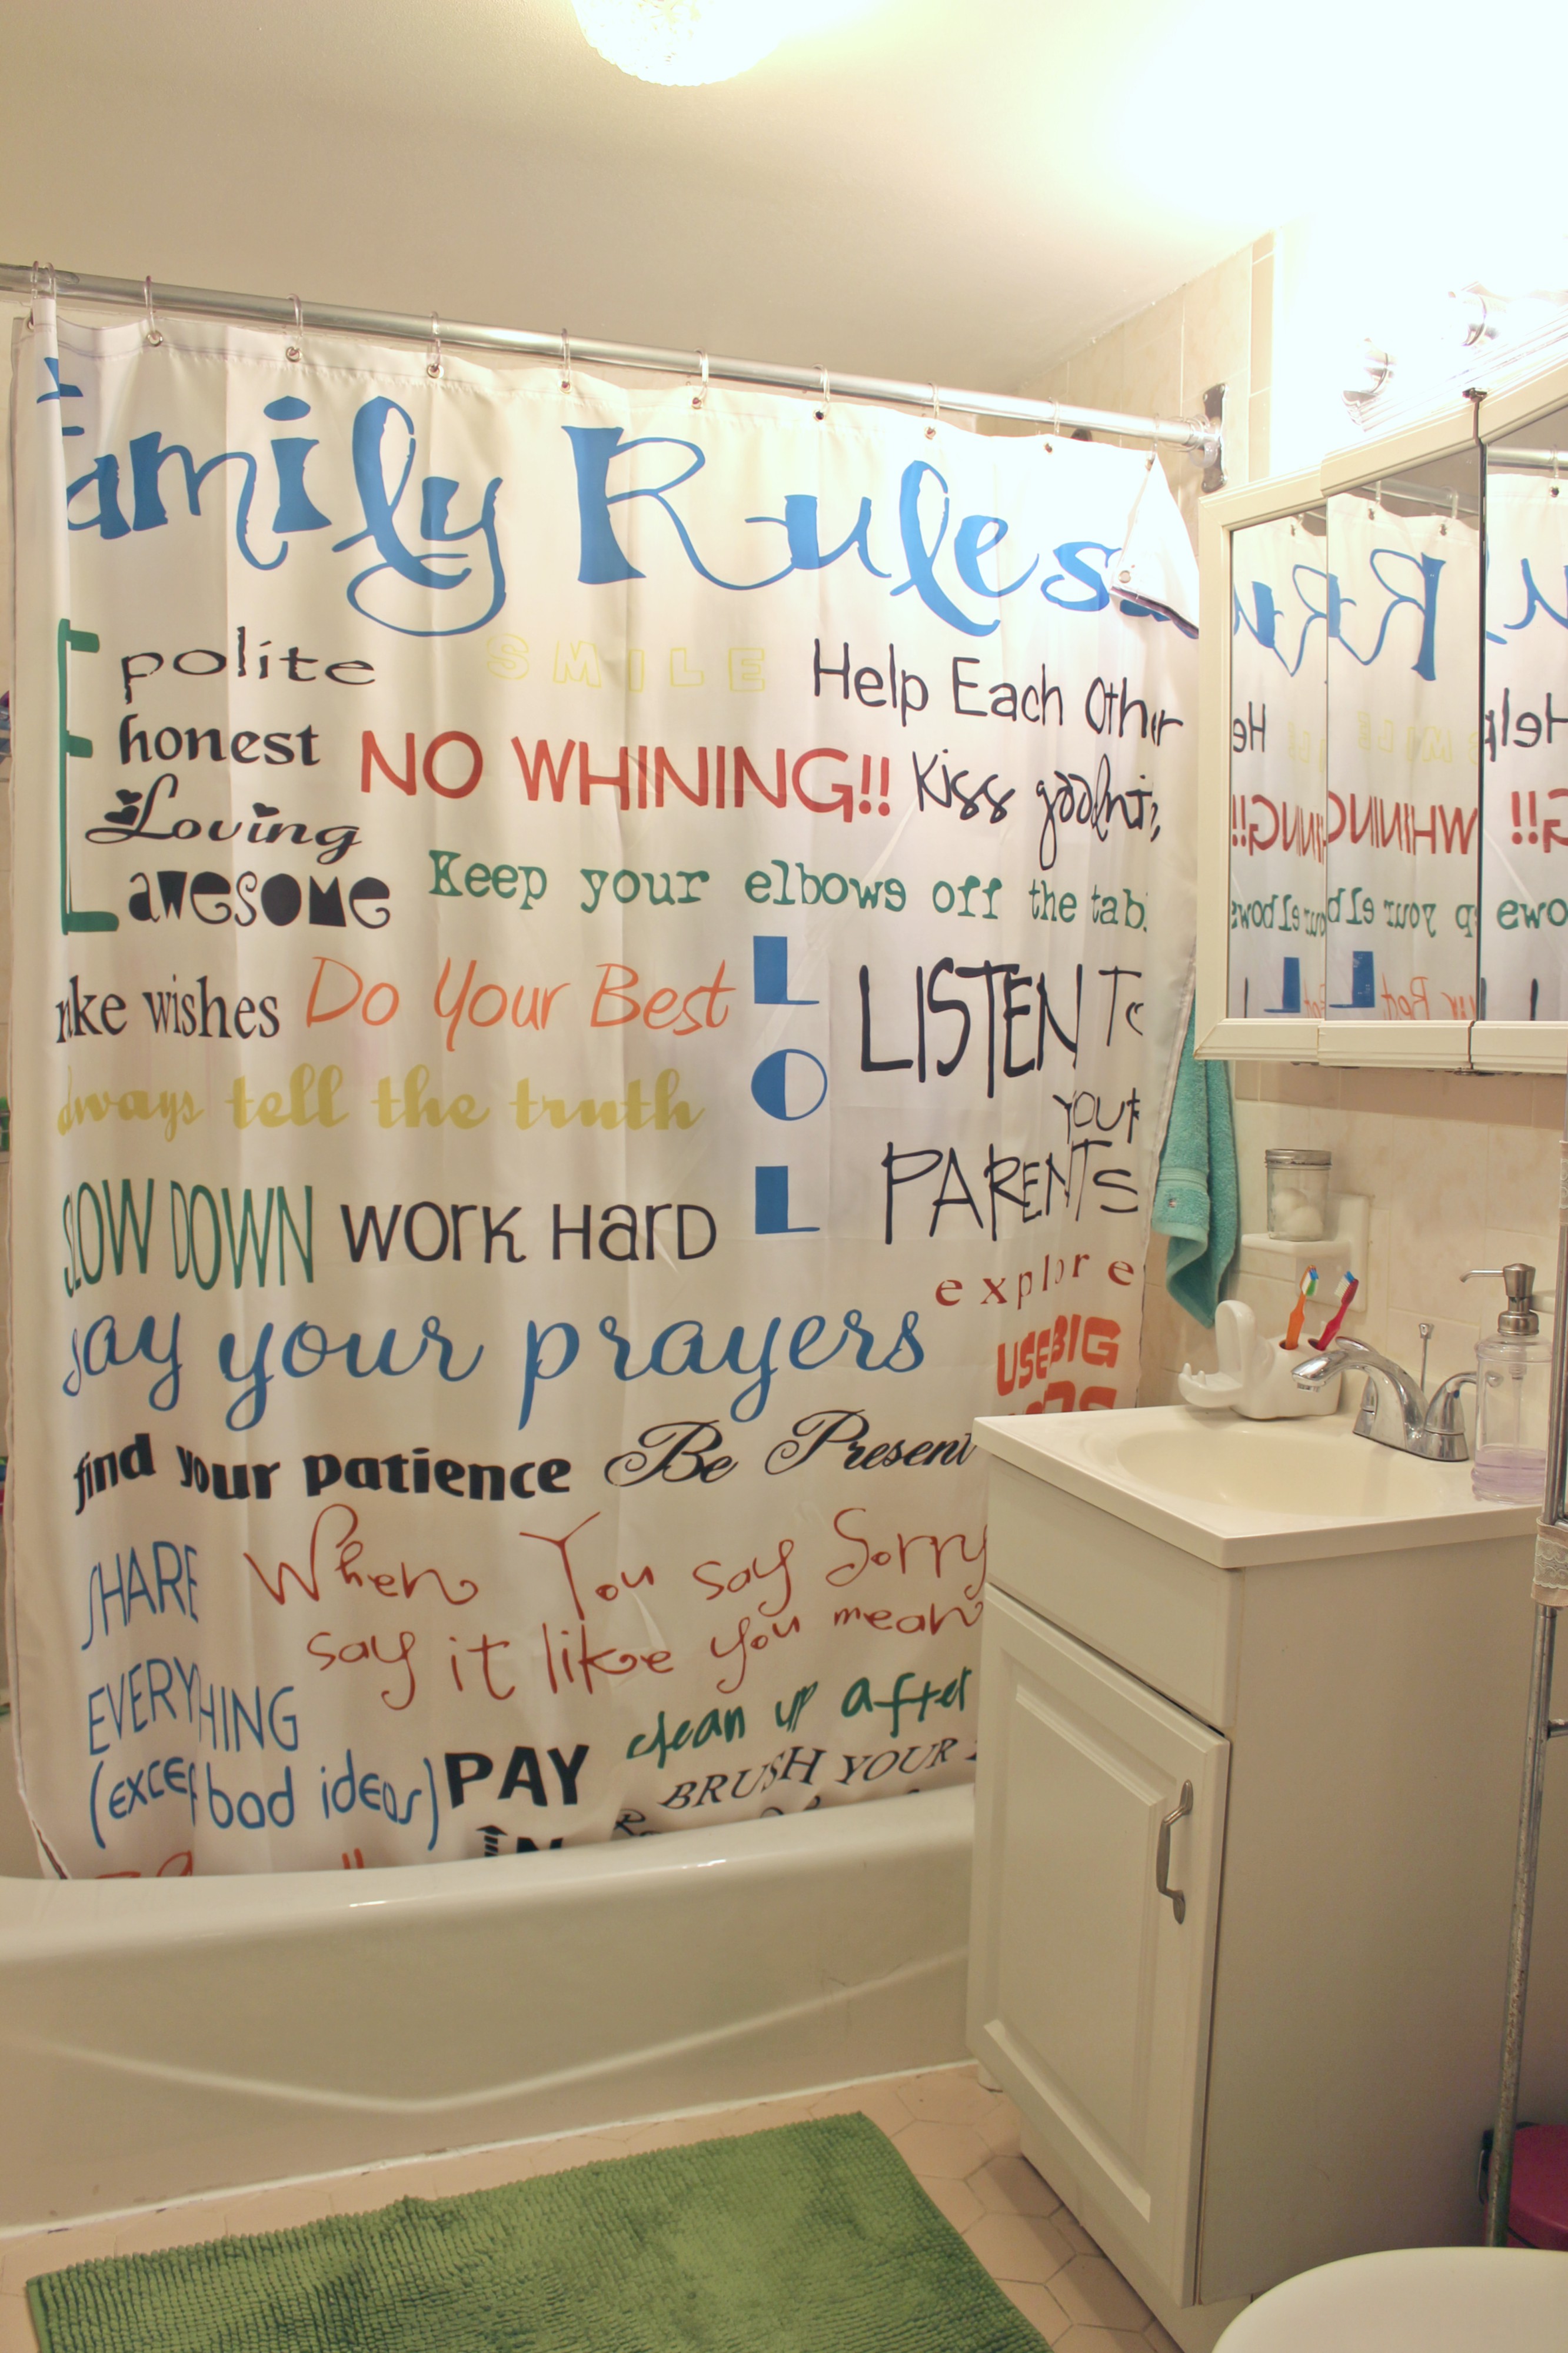 Family Rules
polite
SMILE
Help Each Other
honest
NO WHINING!!
Kiss
Loving
awesome
Keep your elbows off the tab
wishes
Do Your Best
LOL
LISTEN To
YOUR
PARENTS
always tell the truth
SLOW DOWN
WORK HARD
explore
say your prayers
USE BIG
find your patience
Be Present
SHARE
When You say Sorry
say it like you mean
EVERYTHING
clean up after
(except bad ideas)
PAY
BRUSH YOUR
IN